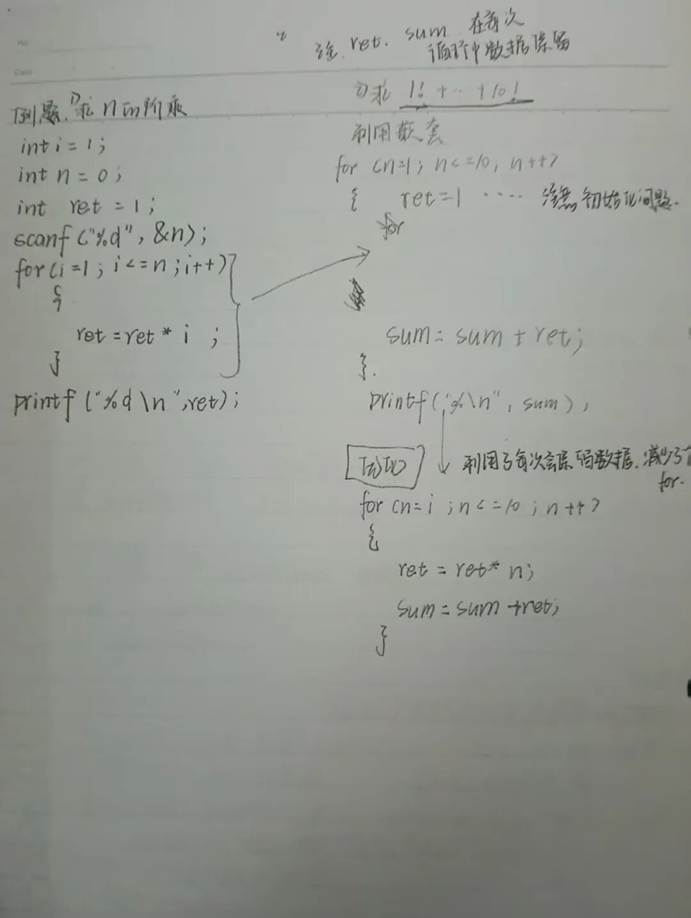 注 ret. sum 在每次
循环中数据保留
例题. ①求 n 的阶乘
int i = 1;
int n = 0;
int ret = 1;
scanf ("%d", &n);
for (i=1; i<=n; i++)
{
ret = ret * i ;
}
printf ("%d \n", ret);
②求 1! + ··· + 10!
利用嵌套
for (n=1; n<=10, n++)
{ ret=1 ···· 注意初始化问题.
for
sum = sum + ret;
}.
printf("%\n", sum),
优化 利用了每次会保留数据, 减少了
for.
for (n=i ; n<=10 ; n++)
{
ret = ret* n;
sum = sum +ret;
}